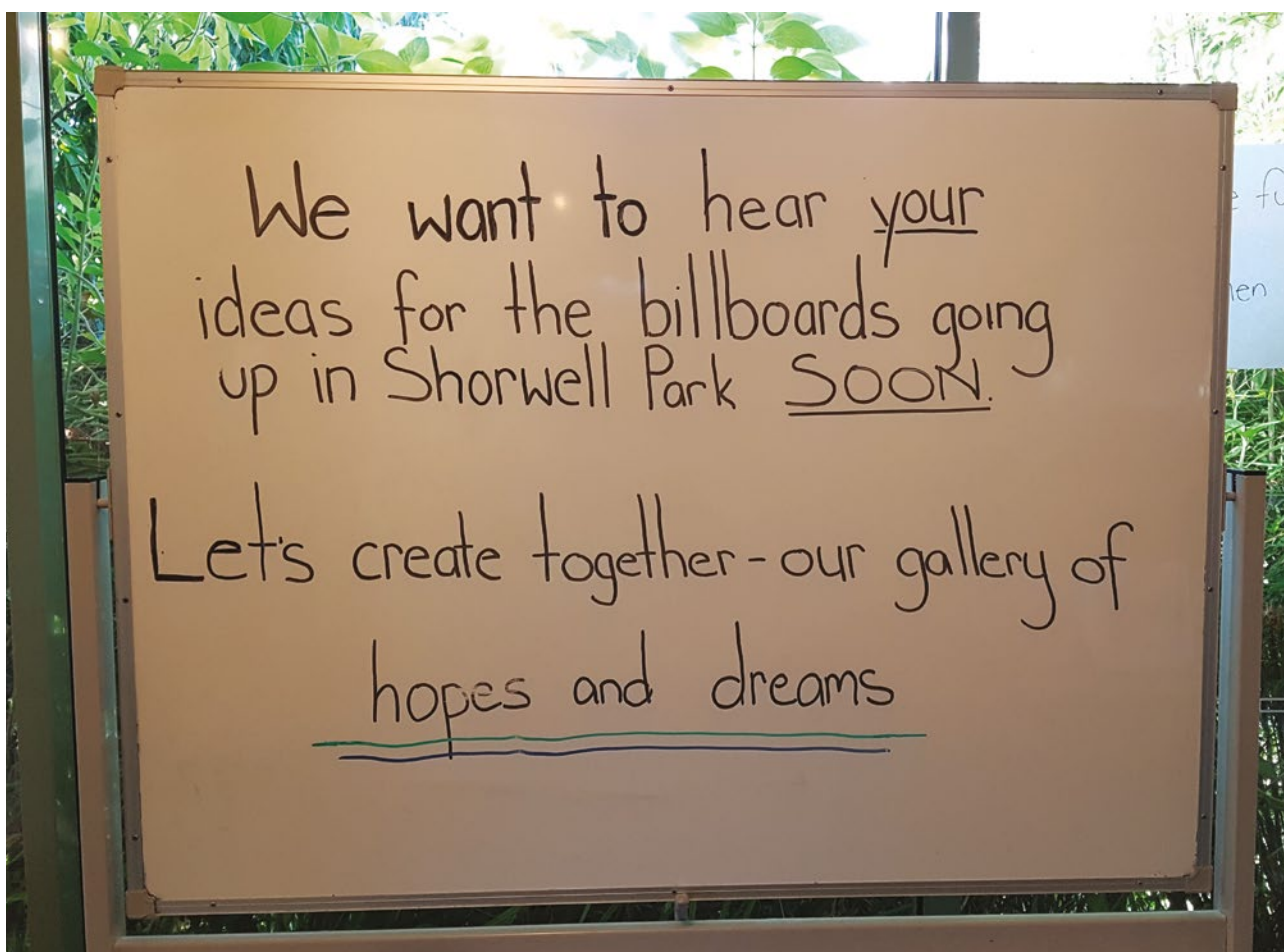 We want to hear your
ideas for the billboards going
up in Shorwell Park SOON.
Let's create together - our gallery of
hopes and dreams